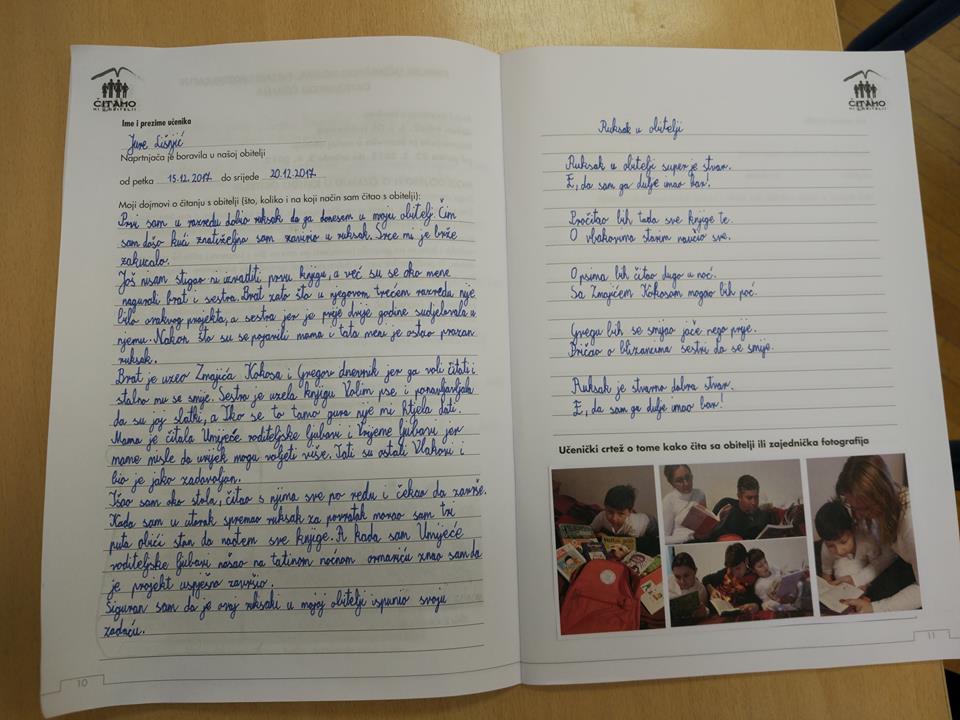 ČITAMO
U OBITELJI
Ime i prezime učenika
Jure Lišnjić
Naprtnjača je boravila u našoj obitelji
od petka 15.12.2017 do srijede 20.12.2017
Moji dojmovi o čitanju s obitelji (što, koliko i na koji način sam čitao s obitelji):
Prvi sam u razredu dobio ruksak da ga donesem u moju obitelj. Čim
sam došo kući znatiželjno sam zavirio u ruksak. Srce mi je brže
zakucalo.
Još nisam stigao ni izvaditi prvu knjigu, a već su se oko mene
nagurali brat i sestra. Brat zato što u njegovom trećem razredu nije
bilo ovakvog projekta, a sestra jer je prije dvije godine sudjelovala u
njemu. Nakon što su se pojavili mama i tata meni je ostao prazan
ruksak.
Brat je uzeo Zmajića Kokosa i Gregov dnevnik jer ga voli čitati i
stalno mu se smije. Sestra je uzela knjigu Volim pse i ponavljavljala
da su joj slatki, a Tko se to tamo gura nije mi htjela dati.
Mama je čitala Umijeće roditeljske ljubavi i Vrijeme ljubavi jer
mame misle da uvijek mogu voljeti više. Tati su ostali Vlakovi i
bio je jako zadovoljan.
Išao sam oko stola, čitao s njima sve po redu i čekao da završe.
Kada sam u utorak spremao ruksak za povratak morao sam tri
puta obići stan da nađem sve knjige. A kada sam Umijeće
roditeljske ljubavi našao na tatinom noćnom ormariću znao sam da
je projekt uspješno završio.
Siguran sam da je ovaj ruksak u mojoj obitelji ispunio svoju
zadaću.
10
ČITAMO
U OBITELJI
Ruksak u obitelji
Ruksak u obitelji super je stvar.
E, da sam ga dulje imao bar.
Pročitao bih tada sve knjige te.
O vlakovima starim naučio sve.
O psima bih čitao dugo u noć.
Sa Zmajićem Kokosom mogao bih poć.
Gregu bih se smijao jače nego prije.
Pričao o blizancima sestri da se smije.
Ruksak je stvarno dobra stvar.
E, da sam ga dulje imao bar!
Učenički crtež o tome kako čita sa obitelji ili zajednička fotografija
11